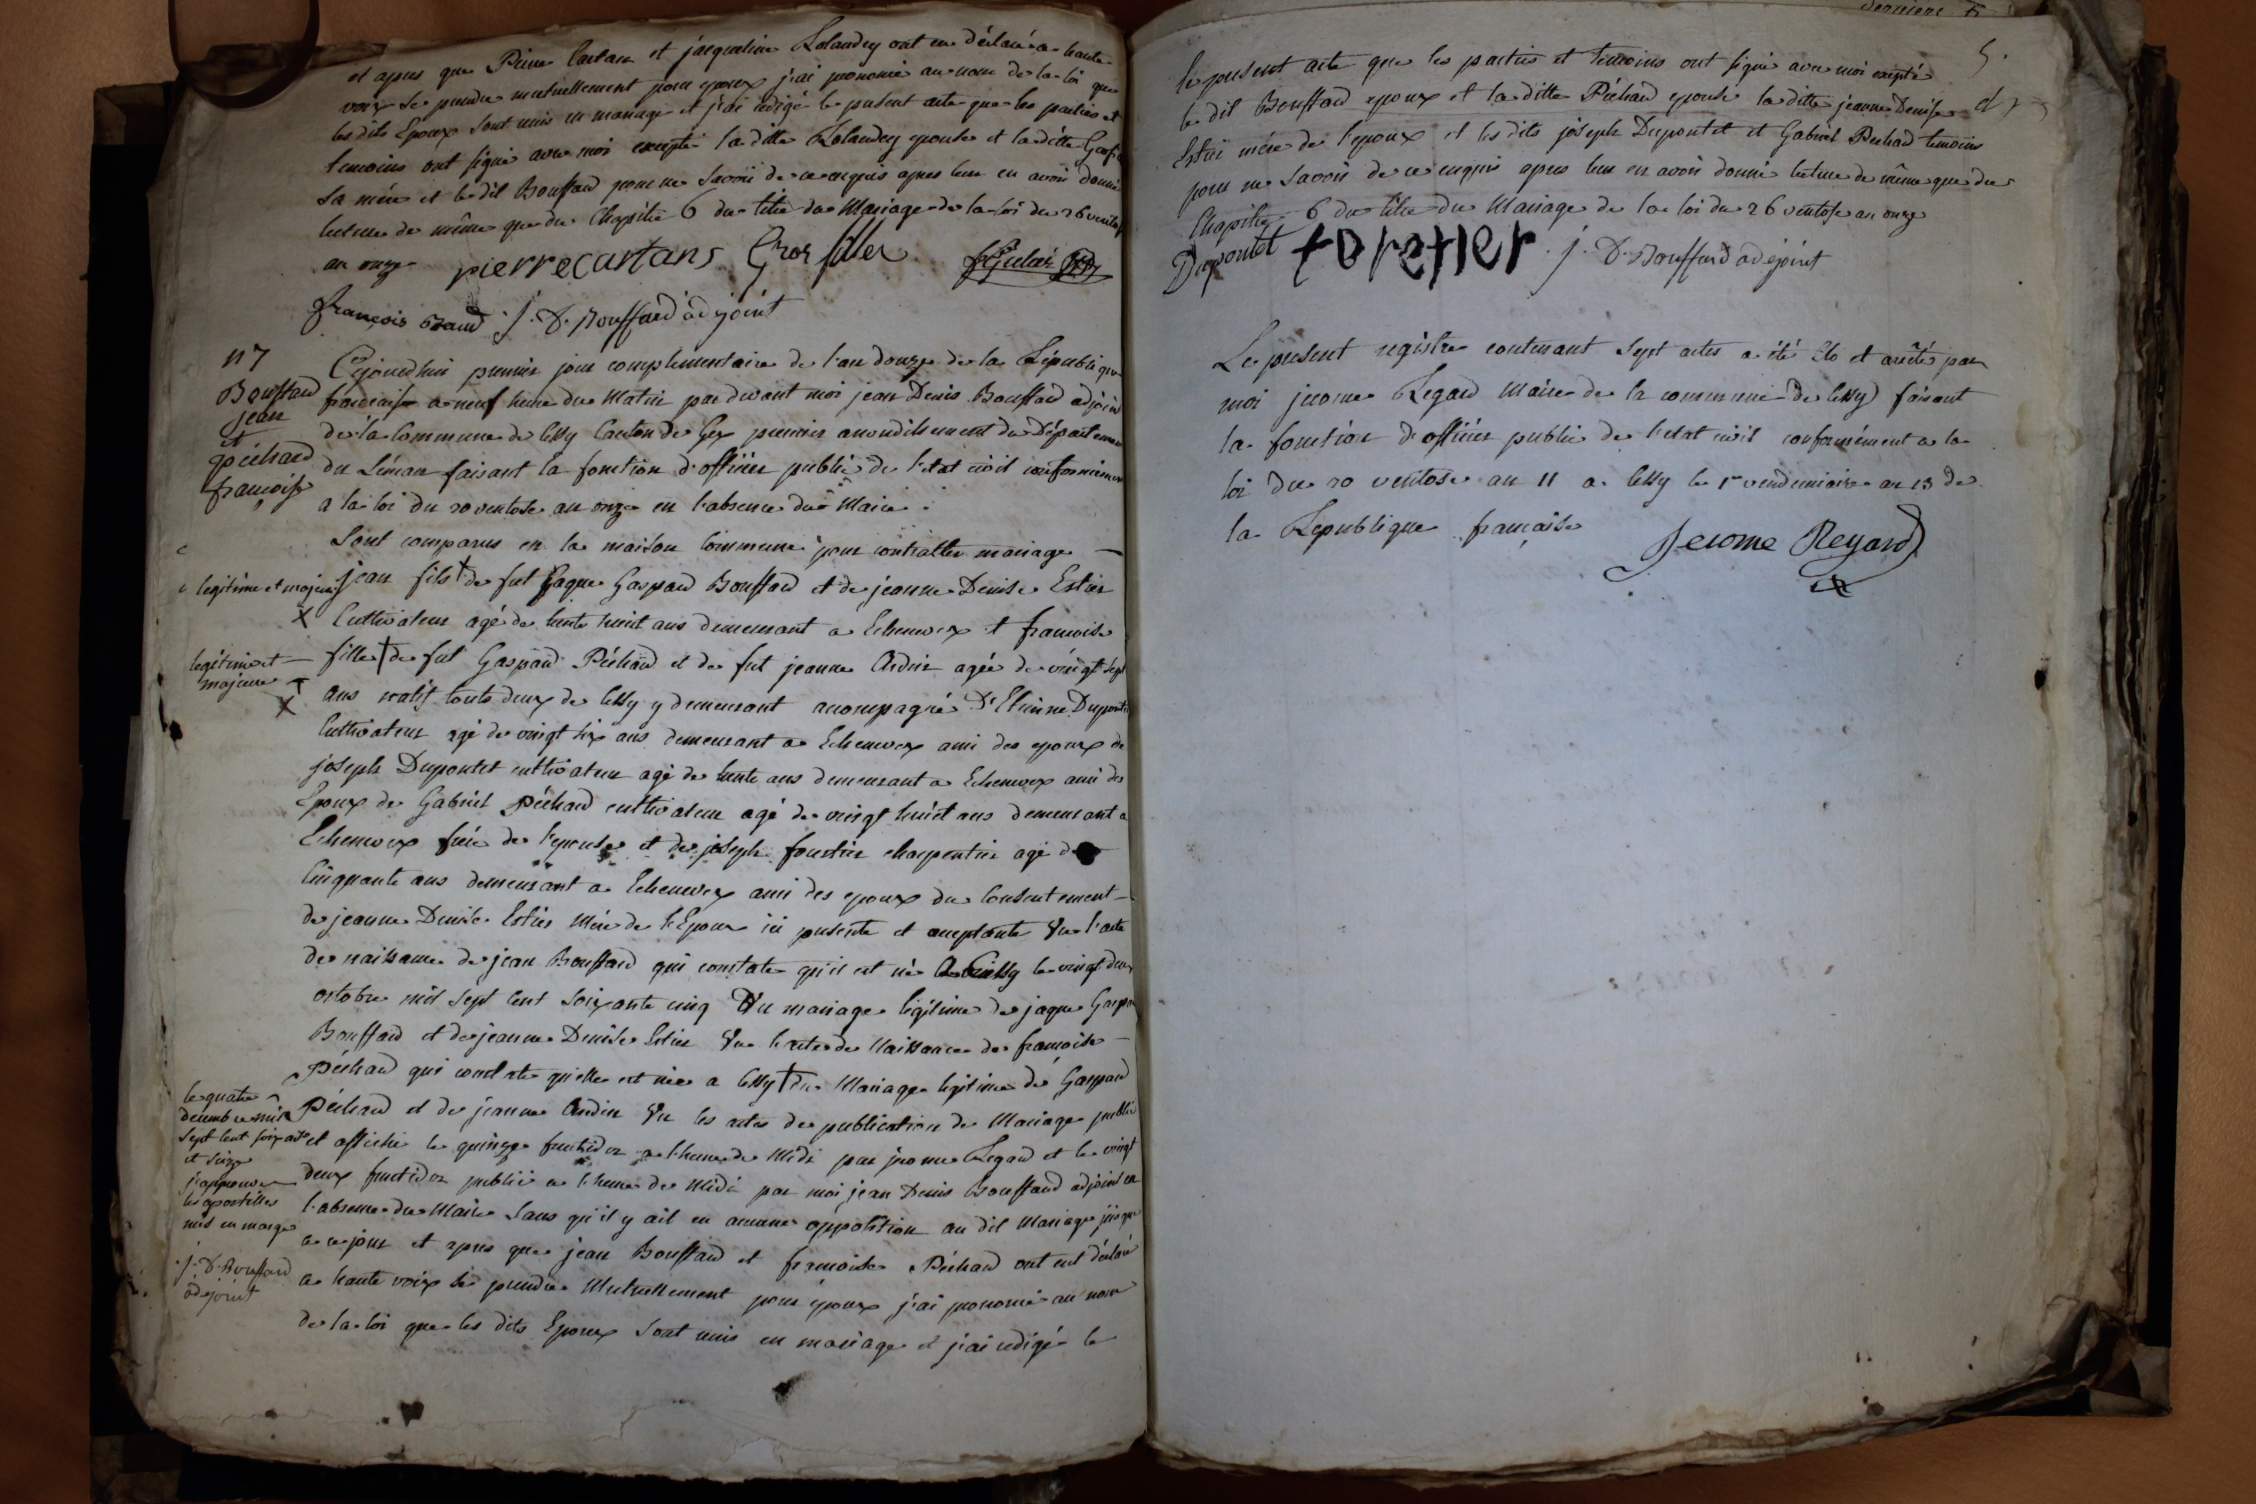 et apres que Pierre Cartans et jacqueline Rolandey ont eu déclaré a haute
voix se prendre mutuellement pour epoux j'ai prononcé au nom de la loi que
les dits Epoux sont unis en mariage et j'ai redigé le présent acte que les parties et
temoins ont signé avec moi excepté la ditte Rolandey epouse et la ditte
sa mére et le dit Bouffard pour ne savoir de ce enquis apres leur en avoir donné
lecture de même que du Chapitre 6 du titre du Mariage de la loi du 26 ventose
an onze pierrecartans Grosfiller
françois J. D. Bouffard adjoint
n 7
Bouffard
jean
et
péchard
françoise
Cejourdhui premier jour complementaire de l'an douze de la République
francaise a neuf heure du Matin pardevant moi jean Denis Bouffard adjoint
de la Commune de Cessy Canton de Gex premier arrondissement du Département
du Léman faisant la fonction d'officier public de l'etat civil conformément
a la loi du 20 ventose an onze en l'absence du Maire.
Sont comparus en la maison Commune pour contracter mariage
legitime et majeur
jean fils † de fut jaque Gaspard Bouffard et de jeanne Denise Estier
X Cultivateur agé de trente huit ans demeurant a Echenevex et francoise
legitime et
majeure †
X
fille † de fut Gaspard Péchard et de fut jeanne Ardin agée de vingt sept
ans natif touts deux de Cessy y demeurant accompagné d'Etienne Dupontet
Cultivateur agé de vingt six ans demeurant a Echenevex ami des epoux de
joseph Dupontet cultivateur agé de trente ans demeurant a Echenevex ami des
Epoux de Gabriel péchard cultivateur agé de vingt huit ans demeurant a
Echenevex frére de l'epouse et de joseph charpentier agé de
Cinquante ans demeurant a Echenevex ami des epoux du Consentement
de jeanne Denise Estier Mére de l'Epoux ici présente et acceptante Vu l'acte
de naissance de jean Bouffard qui constate qu'il est né a Cessy le vingt deux
octobre mil sept cent soixante cinq du mariage légitime de jaque Gaspard
Bouffard et de jeanne Denise Estier Vu l'acte de Naissance de francoise
Péchard qui constate qu'elle est née a Cessy † du Mariage legitime de Gaspard
le quatre
decembre mil
sept cent soixante
et seize
j'approuve
les apostilles
mis en marge
J. D. Bouffard
adjoint
Péchard et de jeanne Ardin Vu les actes de publication de Mariage publié
et affiché le quinze fructidor a l'heure de Midi par jrome Regard et le vingt
deux fructidor publié a l'heure de Midi par moi jean Denis Bouffard adjoint en
l'absence du Maire sans qu'il y ait eu aucune opposition au dit Mariage jusque
a ce jour et apres que jean Bouffard et francoise Péchard ont eut déclaré
a haute voix se prendre Mutuellement pour époux j'ai prononcé au nom
de la loi que les dits Epoux sont unis en mariage et j'ai redigé le
5.
le présent acte que les parties et temoins ont signé avec moi excepté
le dit Bouffard epoux et la ditte Péchard epouse la ditte jeanne Denise
Estier mére de l'epoux et les dits joseph Dupontet et Gabriel Péchard temoins
pour ne savoir de ce enquis apres leur en avoir donné lecture de même que du
Chapitre 6 du titre du Mariage de la loi du 26 ventose an onze
Dupontet foretier J. D. Bouffard adejoint
Le present registre contenant sept actes a été clo et arrêté par
moi jerome Regard Maire de la commune de Cessy faisant
la fonction d'officier public de l'etat civil conformément a la
loi du 20 ventose an 11 a Cessy le 1er vendemiaire an 13 de
la République française
Jerome Regard